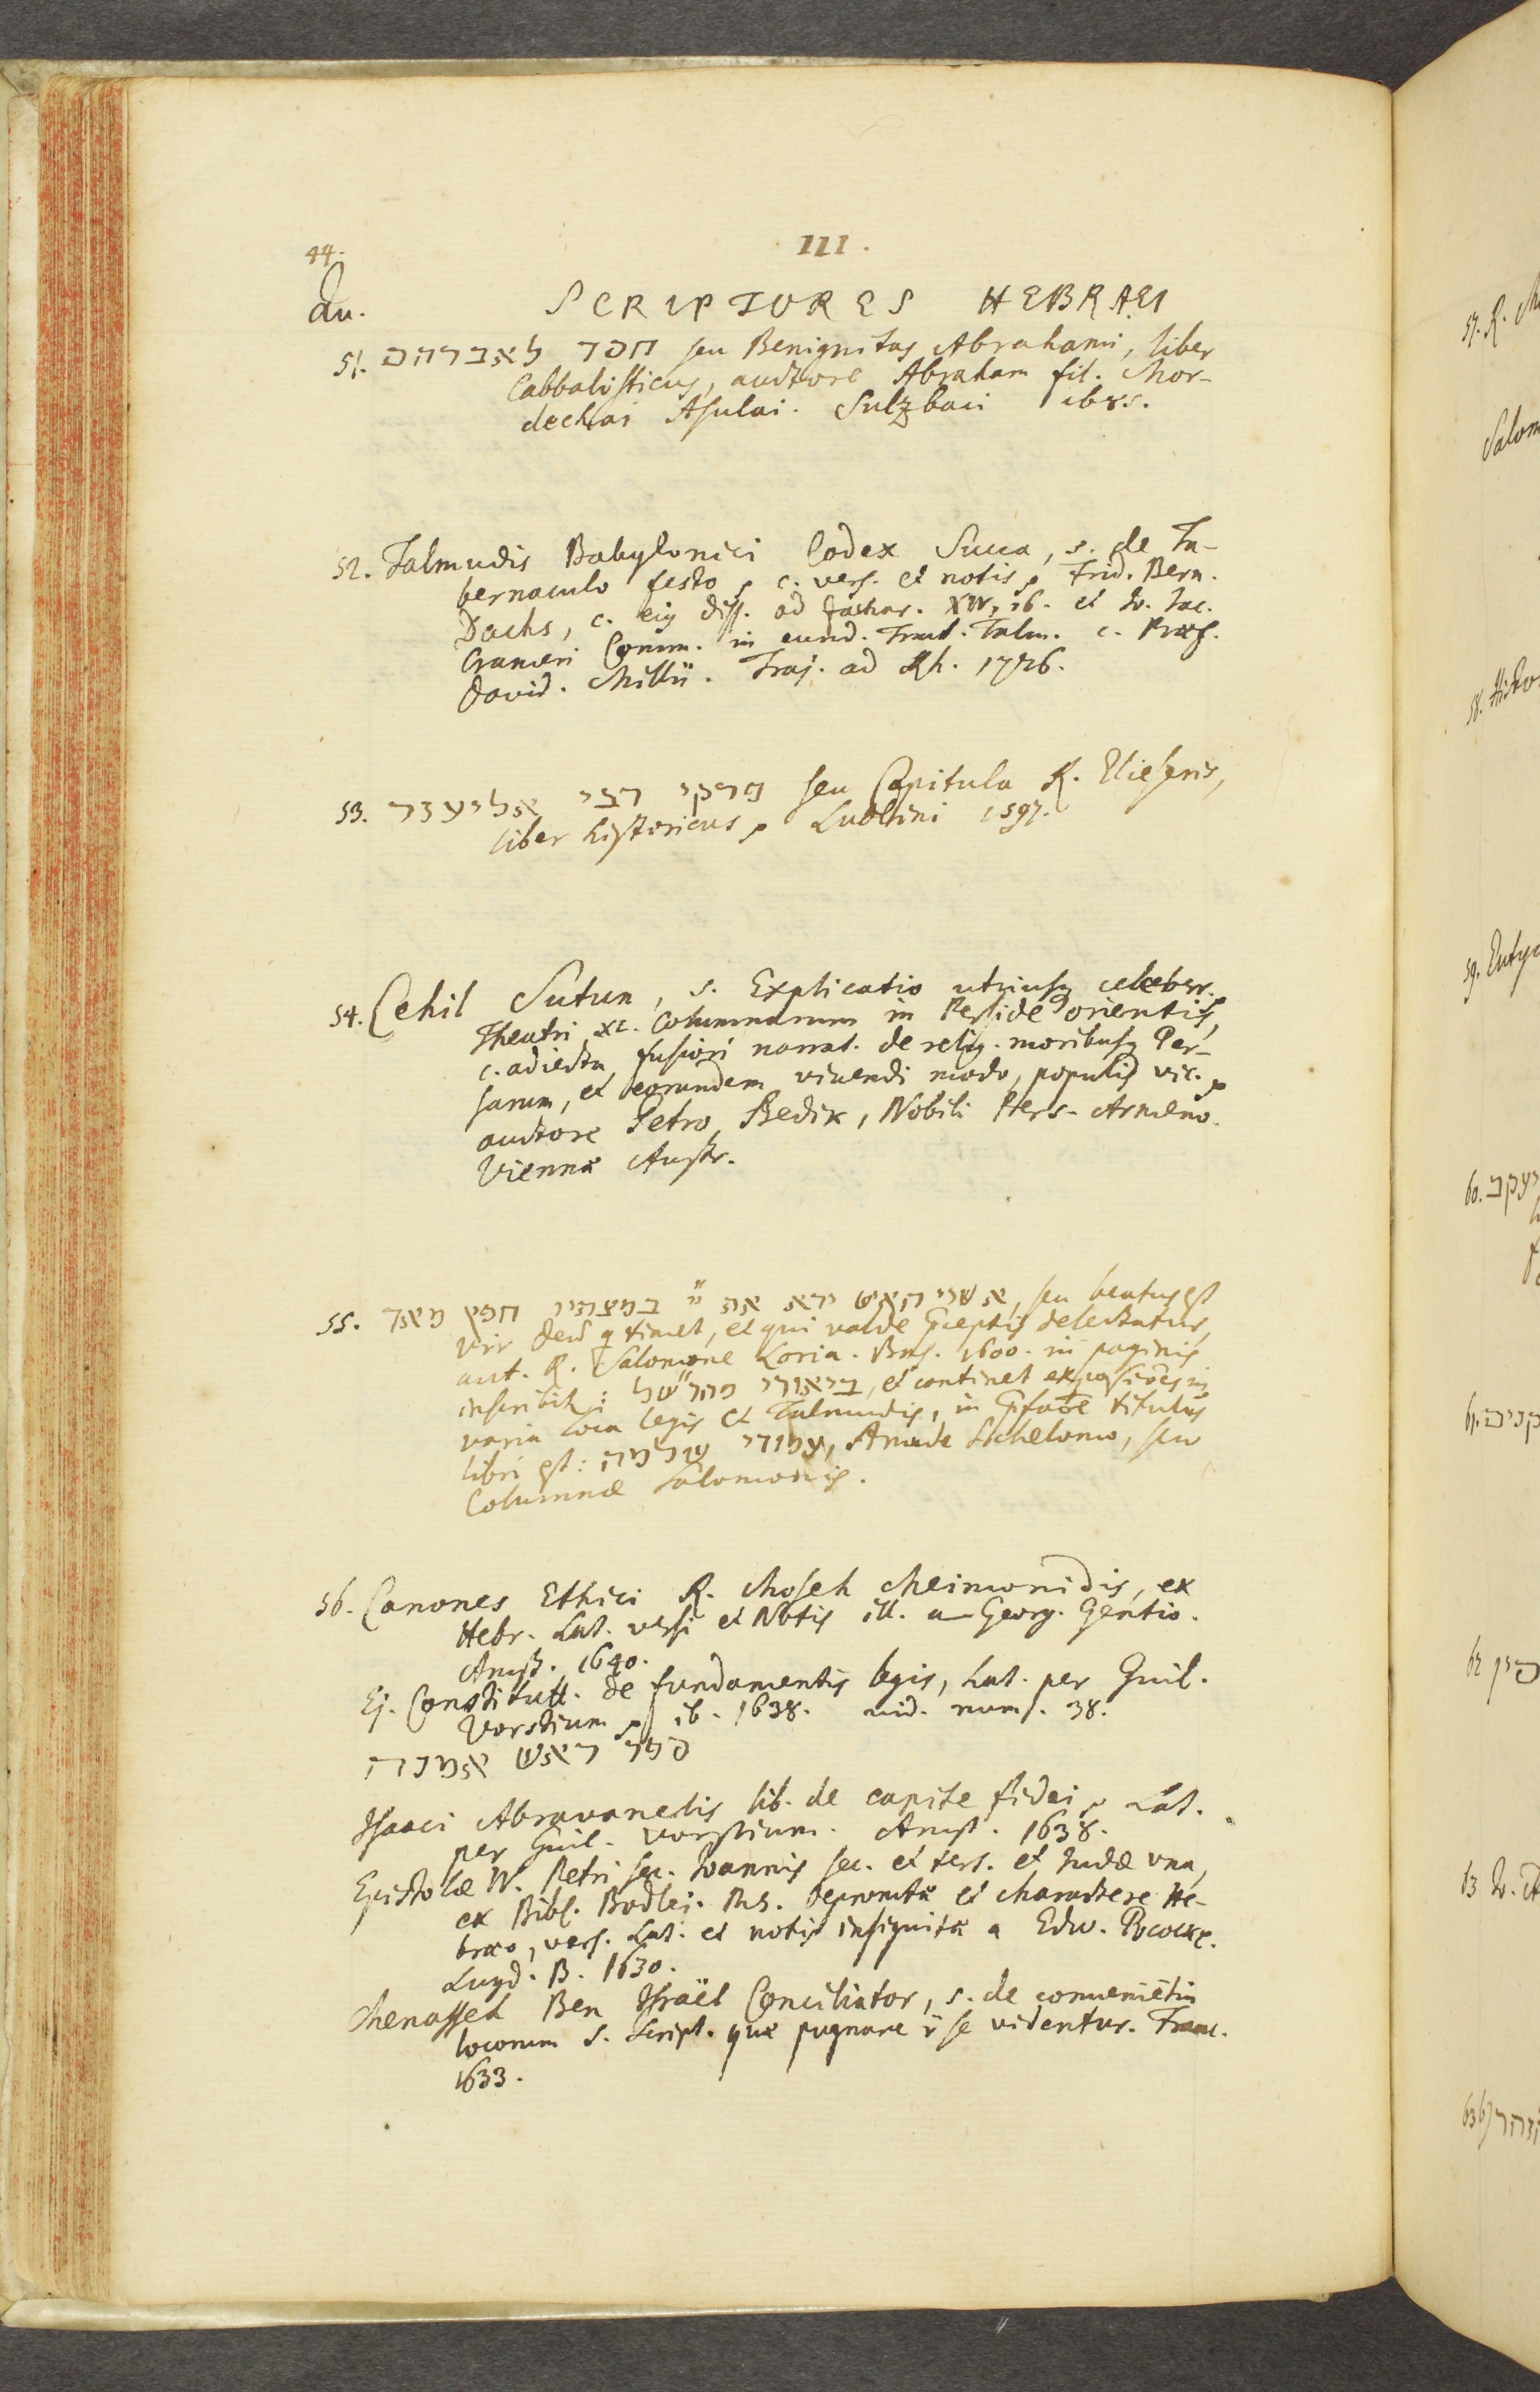 III.
44.
Qu. SCRIPTORES HEBRAEI
51. חסד לאברהם seu Benignitas Abrahami, liber
Cabbalisticus, auctore Abraham fil. Mor-
dechai Asulai. Sulzbaci 1685.
52. Talmudis Babylonici Codex Succa, s. de Ta-
bernaculo festo, c. vers. et notis, Frid. Bern.
Dachs, c. eig diss. ad Zachar. XIV, 16. et Io. Iac.
Crameri Comm. in eund. Tract. Talm. c. Præf.
David. Millii. Traj. ad Rh. 1726.
53. פירקי רבי אליעזר seu Capitula R. Elieseris,
liber historicus, Lublini 1597.
54. Cehil Sutun, s. Explicatio utriusq celeberr.
Theatri XL. Columnarum in Perside orientis,
c. adiecta fusiori narrat. de relig. moribusq Per-
sarum, et eorundem vivendi modo, populis vic.
auctore Petro Bedik, Nobili Pers-Armeno.
Viennæ Austr.
55. אשרי האיש ירא את יי במצותיו חפץ מאד, seu beatus est
vir Deū q timet, et qui valde præceptis delectatur,
aut. R. Salomone Loria. Bas. 1600. in paginis
inscribit: ביאורי מהר"של, et continet expositiōes in
varia loca legis et Talmudis, in præfatōe titulus
libri est: עמודי שלמה, Amude Schelomo, seu
Columnæ Salomonis.
56. Canones Ethici R. Moseh Meimonidis, ex
Hebr. Lat. versi et Notis ill. a Georg. Gentio.
Amst. 1640.
Ej. Constitutt. de fundamentis legis, Lat. per Guil.
Vorstium, ib. 1638. vid. num. 38.
ספר ראש אמנה
Isaaci Abravanelis lib. de capite fidei, Lat.
per Guil. Vorstium. Amst. 1638.
Epistolæ IV. Petri sec. Ioannis sec. et tert. et Iudæ una,
ex Bibl. Bodlej. Ms. depromtæ et charactere He-
bræo, vers. Lat. et notis insignitæ a Edw. Pococke.
Lugd. B. 1630.
Menasseh Ben Israël Conciliator, s. de convenietia
locorum S. Script. quæ pugnare īr se videntur. Franc.
1633.
57. R.
Salom
58. Histo
59. Eutyc
60.
61.
62
63 Io.